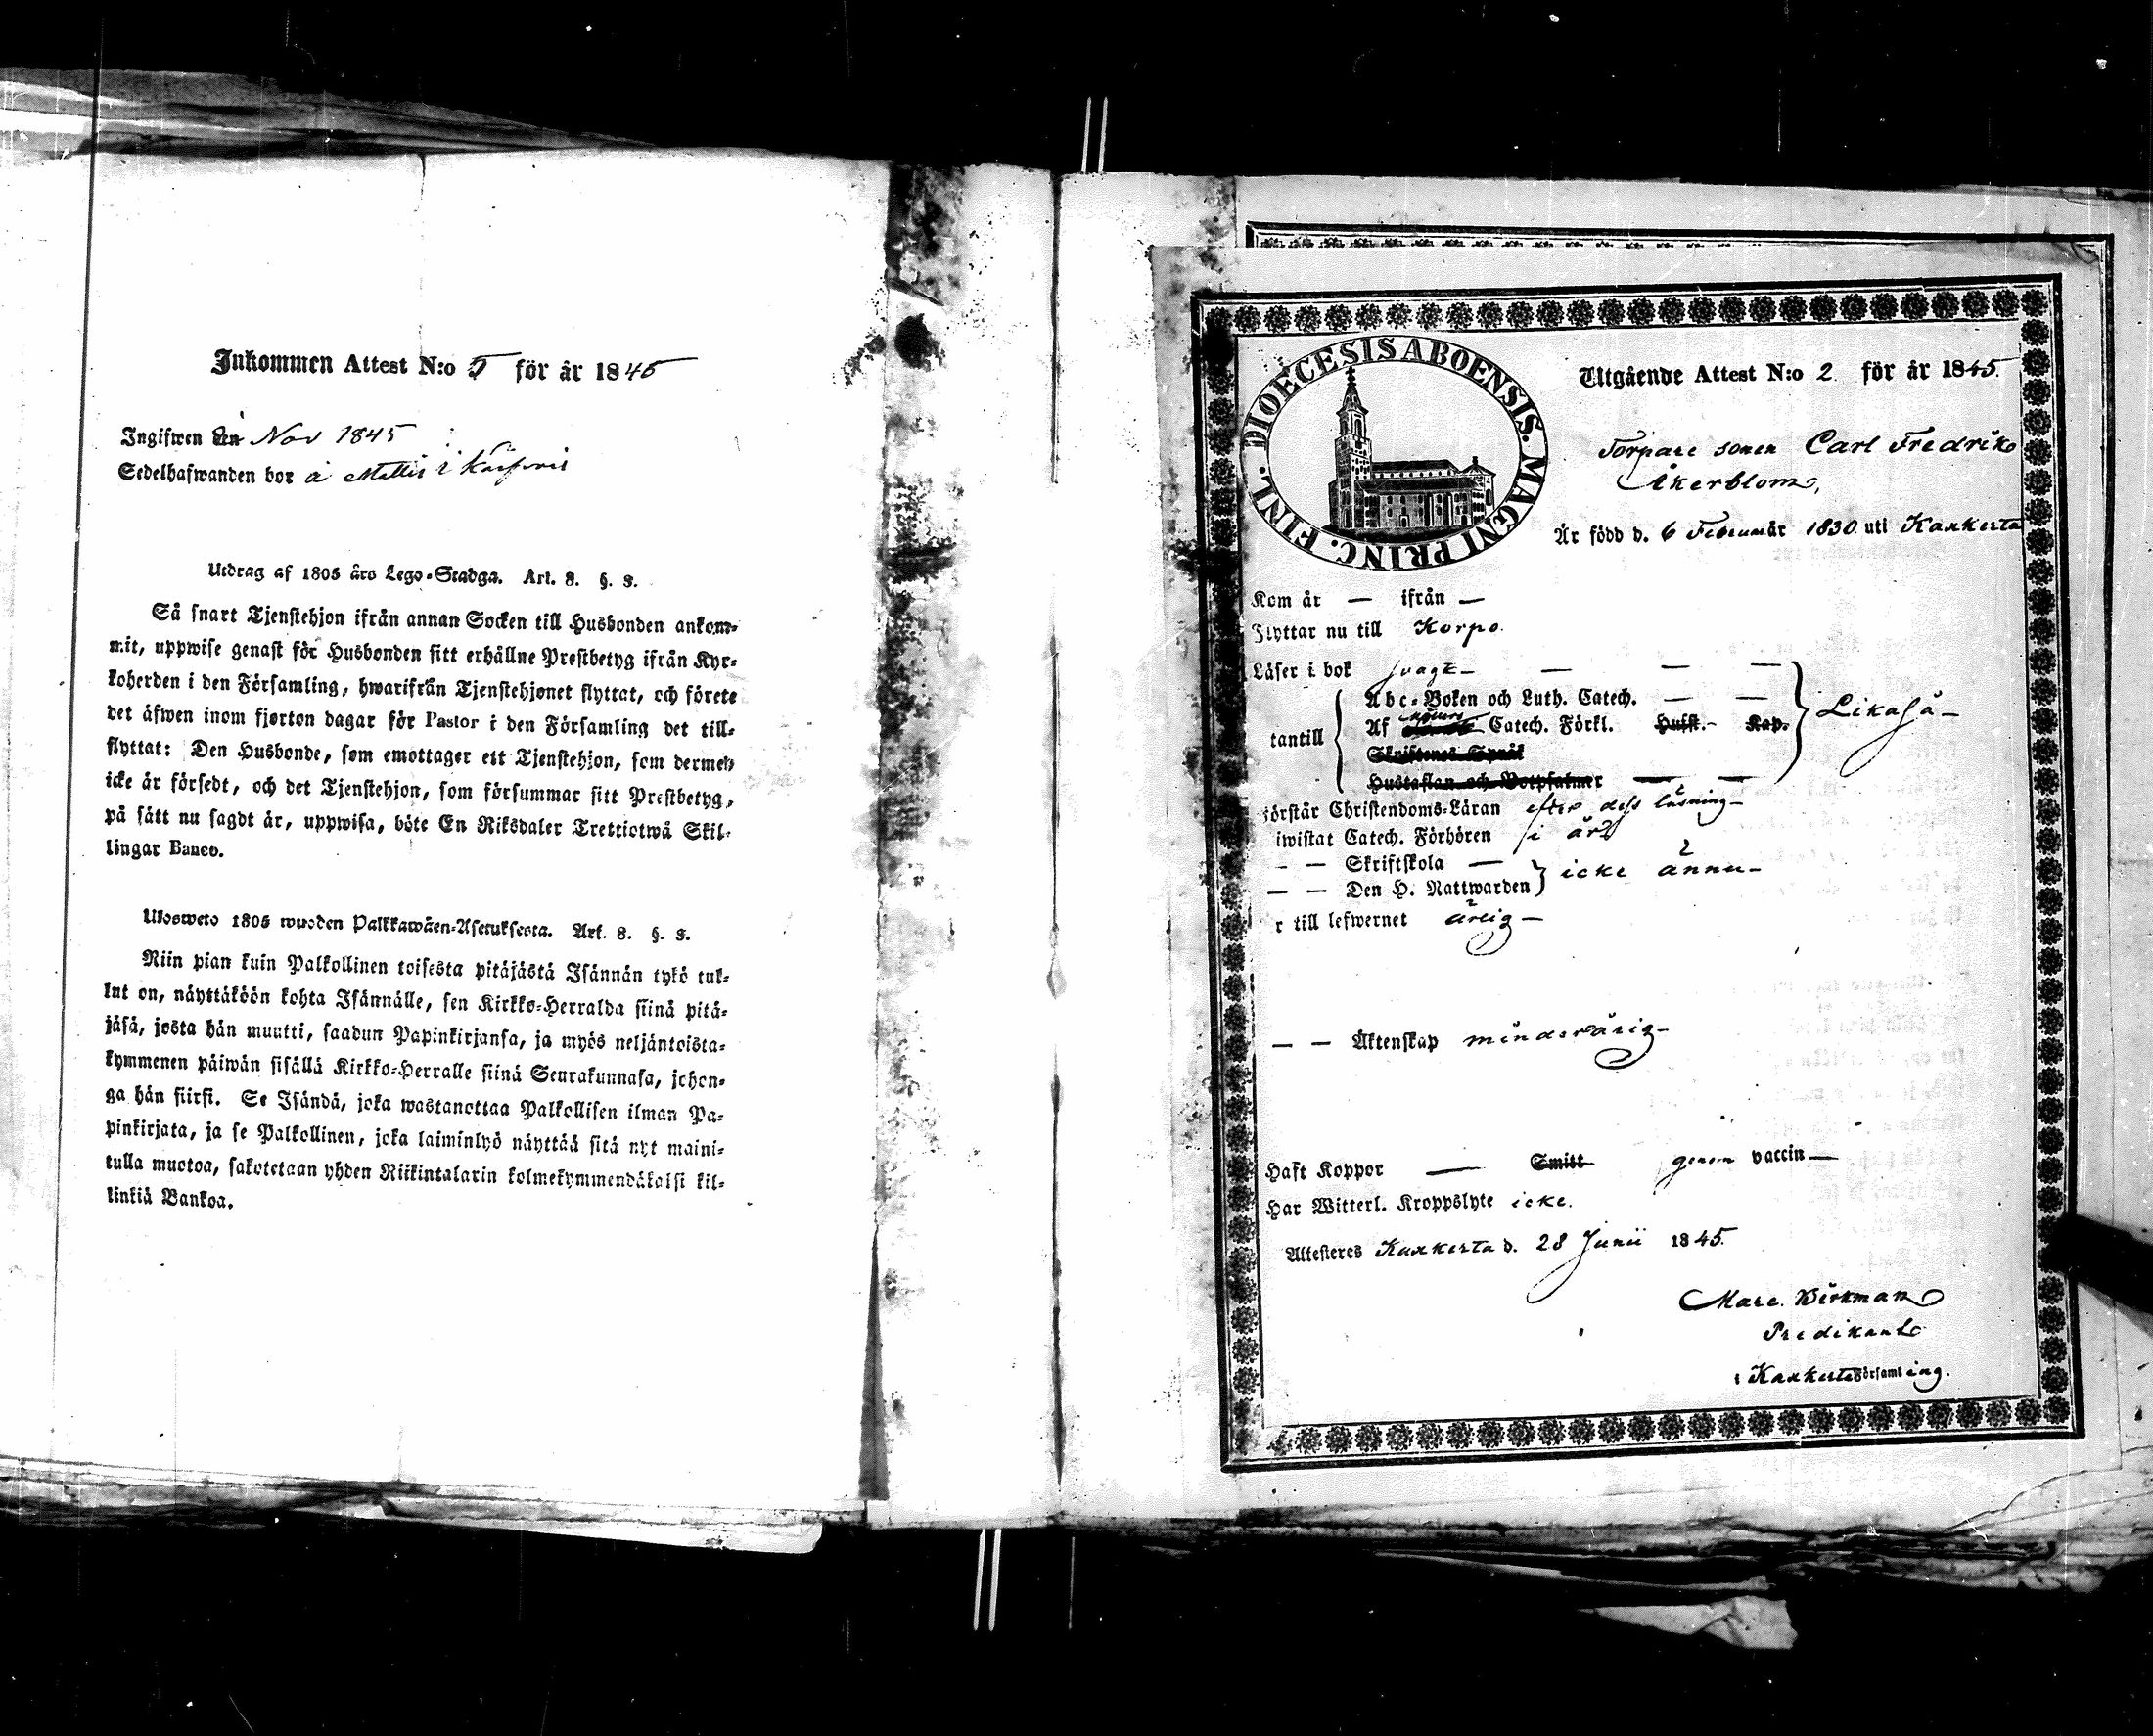 Inkommen Attest N:o 5 för år 1845
Ingifwen i Nov 1845
Sedelhafwanden bor å Mattis i
Utdrag af 1805 års Lego-Stadga. Art. 8. §. 3.
Så snart Tjenstehjon ifrån annan Socken till Husbonden ankom-
mit, uppwise genast för Husbonden sitt erhållne Prestbetyg ifrån Kyr-
koherden i den Församling, hwarifrån Tjenstehjonet flyttat, och förete
det äfwen inom fjorton dagar för Pastor i den Församling det till-
flyttat: Den Husbonde, som emottager ett Tjenstehjon, som dermed
icke är försedt, och det Tjenstehjon, som försummar sitt Prestbetyg,
på sätt nu sagdt är, uppwisa, böte En Riksdaler Trettiotwå Skil-
lingar Banco.
Ulosweto 1805 wuoden Palkkawäen-Asetuksesta. Art. 8. §. 3.
Niin pian kuin Palkollinen toisesta pitäjästä Isännän tykö tul-
lut on, näyttäköön kohta Isännälle, sen Kirkko-Herralda siinä pitä-
jäsä, josta hän muutti, saadun Papinkirjansa, ja myös neljäntoista-
kymmenen päiwän sisällä Kirkko-Herralle siinä Seurakunnasa, johon-
ga hän siirsi. Se Isändä, joka wastanottaa Palkollisen ilman Pa-
pinkirjata, ja se Palkollinen, joka laiminlyö näyttää sitä nyt maini-
tulla muotoa, sakotetaan yhden Riikintalarin kolmekymmendäkaksi kil-
linkiä Bankoa.
DIOECESIS ABOENSIS. MAGNI PRINC. FINL.
Utgående Attest N:o 2 för år 1845.
Torpare sonen Carl Fredrik
Åkerblom,
Är född d. 6 Februar är 1830 uti Kaxkerta
Kom år — ifrån —
Flyttar nu till Korpo.
Läser i bok svagt — — — —
Abc-Boken och Luth. Catech. — —
tantill Af Catech. Förkl. Hufst.- Kap. Likaså —
Skriftenes Språk
Hustaflan och Botpsalmer — —
förstår Christendoms-Läran efter dess läsning —
iwistat Catech. Förhören i år
— — Skriftskola —
— — Den H. Nattwarden icke ännu —
r till lefwernet ärlig —
— — Äktenskap minderårig —
Haft Koppor — Smitt genom vaccin —
Har Witterl. Kroppslyte icke.
Attesteres Kaxkerta d. 28 Junii 1845.
Marc. Birkman
Predikant
i Kaxkerta församling.